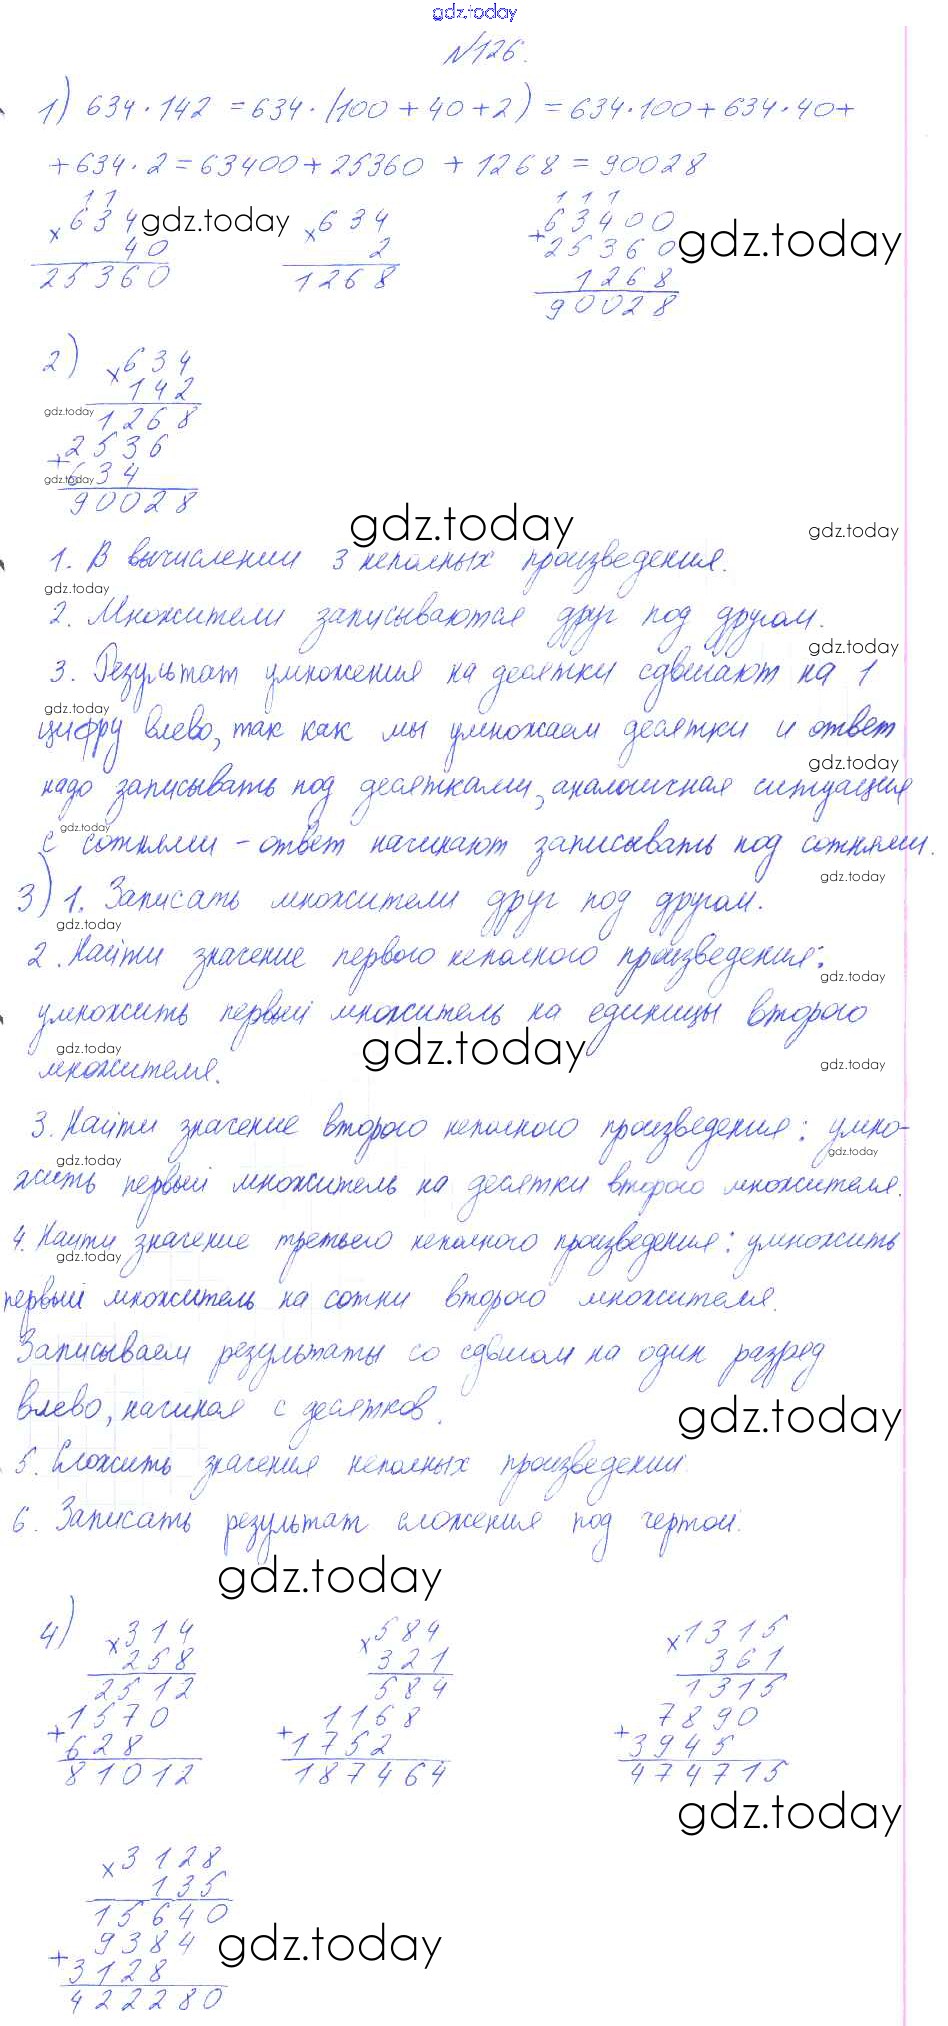 gdz.today
№126.
1) 634·142 = 634·(100 + 40 + 2) = 634·100 + 634·40 +
+ 634·2 = 63400 + 25360 + 1268 = 90028
1 1
1 1 1
×634 gdz.today ×634
63400
gdz.today
40
2
+25360
25360
1268
1268
90028
2) ×634
142
gdz.today 1268
2536
+
gdz.today 634
90028
gdz.today
gdz.today
1. В вычислении 3 неполных произведения.
gdz.today
2. Множители записываются друг под другом.
gdz.today
3. Результат умножения на десятки сдвигают на 1
gdz.today
цифру влево, так как мы умножаем десятки и ответ
gdz.today
надо записывать под десятками, аналогичная ситуация
gdz.today
с сотнями - ответ начинают записывать под сотнями.
gdz.today
3) 1. Записать множители друг под другом.
gdz.today
2. Найти значение первого неполного произведения:
gdz.today
умножить первый множитель на единицы второго
gdz.today
gdz.today
gdz.today
множителя.
3. Найти значение второго неполного произведения: умно-
gdz.today
gdz.today
жить первый множитель на десятки второго множителя.
4. Найти значение третьего неполного произведения: умножить
gdz.today
первый множитель на сотни второго множителя.
Записываем результаты со сдвигом на один разряд
влево, начиная с десятков.
gdz.today
5. Сложить значения неполных произведений.
6. Записать результат сложения под чертой.
gdz.today
4) ×314 ×584 ×1315
258 321 361
2512 584 1315
1570 1168 7890
+628 +1752 +3945
81012 187464 474715
gdz.today
×3128
135
15640
9384 gdz.today
+3128
422280